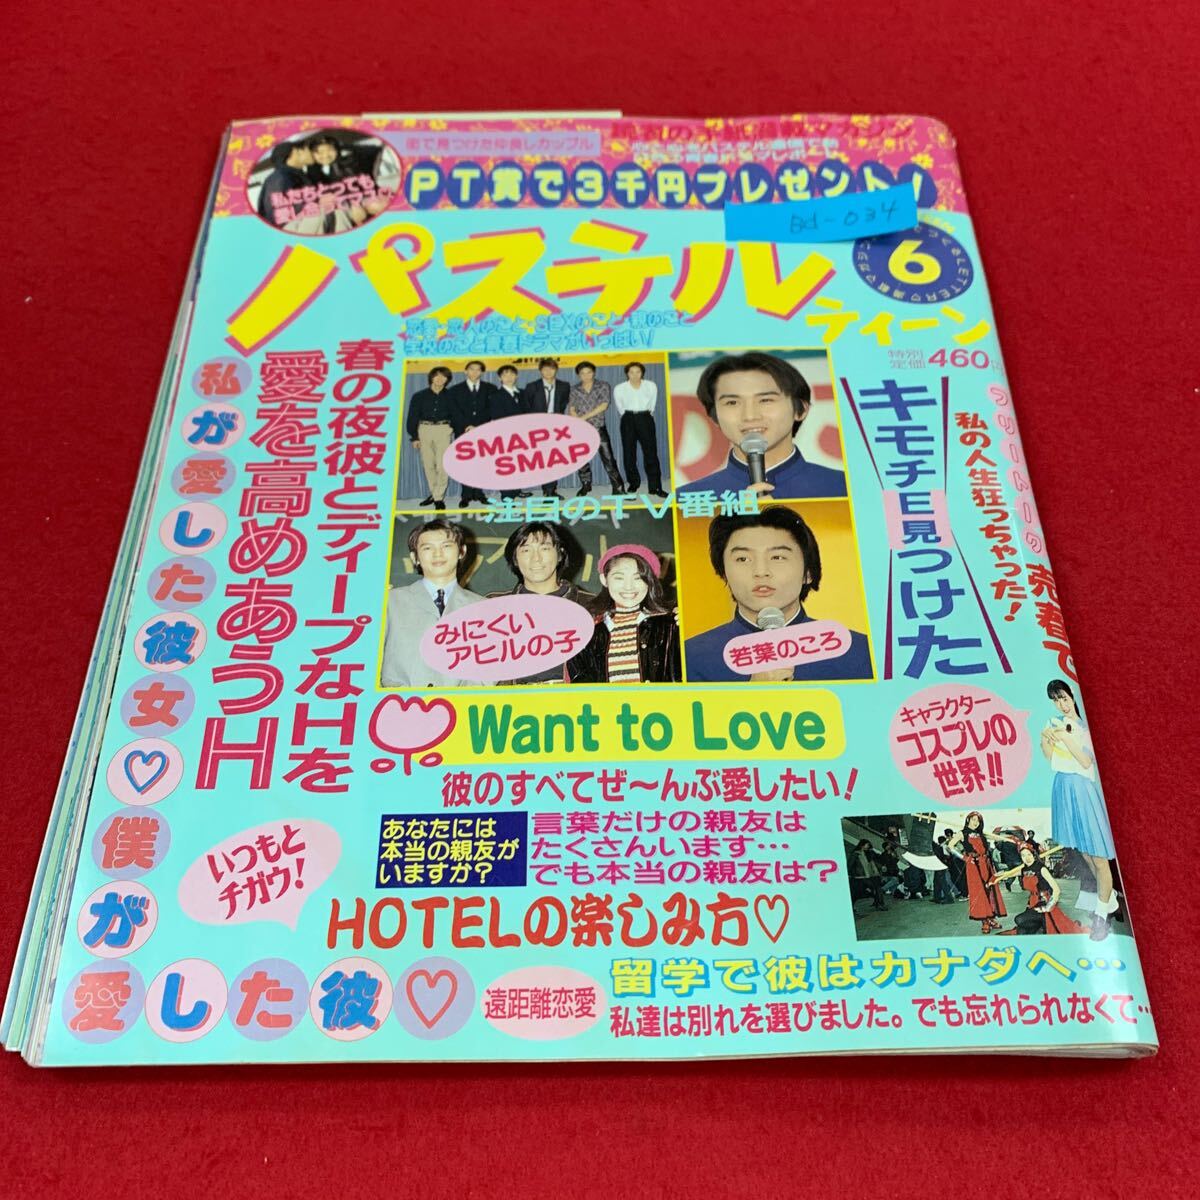 街で見つけた仲良しカップル
私たちとっても
愛し合ってマス♡
PT賞で3千円プレゼント!
Bd-034
パステル
ティーン
6
特別
定価460円
恋愛・恋人のこと・SEXのこと・親のこと
学校のこと青春ドラマがいっぱい!
春の夜彼とディープなHを
愛を高めあうH
私が愛した彼女♡
僕が
愛した彼♡
SMAP×
SMAP
注目のTV番組
みにくい
アヒルの子
若葉のころ
キモチE見つけた
フリートーク
私の人生狂っちゃった!
売春で
キャラクター
コスプレの
世界!!
Want to Love
彼のすべてぜ〜んぶ愛したい!
あなたには
本当の親友が
いますか?
言葉だけの親友は
たくさんいます…
でも本当の親友は?
いつもと
チガウ!
HOTELの楽しみ方♡
遠距離恋愛
留学で彼はカナダへ…
私達は別れを選びました。でも忘れられなくて…